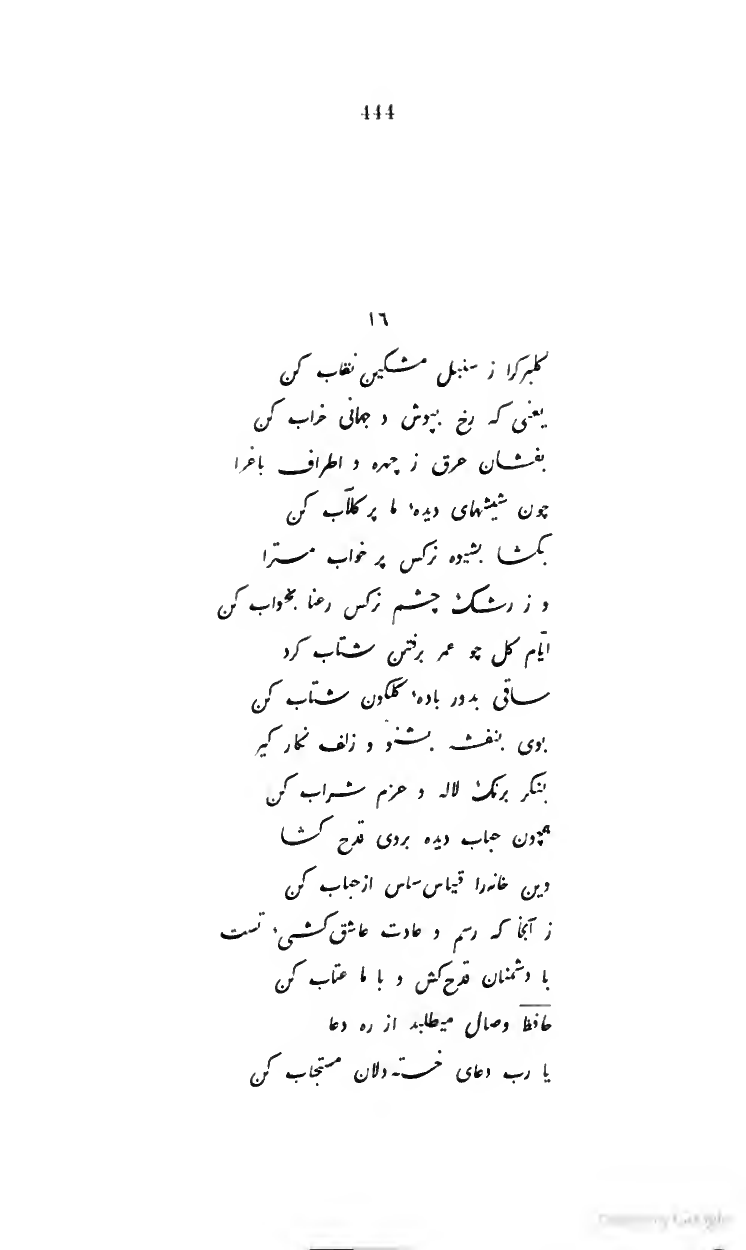 444
١٦
کلبرکرا ز سنبل مشکین نقاب کن
یعنی که رخ بپوش و جهانی خراب کن
بفشان عرق ز چهره و اطراف باغرا
چون شیشهای دیدهٔ ما پر کلآب کن
بکشا بشیوه نرکس پر خواب مسترا
و ز رشک چشم نرکس رعنا بخواب کن
ایّام کل چو عمر برفتن شتاب کرد
ساقی بدور بادهٔ کلکون شتاب کن
بوی بنفشه بشنو و زلف نکار کیر
بنکر برنک لاله و عزم شراب کن
همچون حباب دیده بروی قدح کشا
وین خانهرا قیاس اساس از حباب کن
ز آنجا که رسم و عادت عاشق کشیٔ تست
با دشمنان قدح کش و با ما عتاب کن
حافظ وصال میطلبد از ره دعا
یا رب دعای خسته دلان مستجاب کن
Google